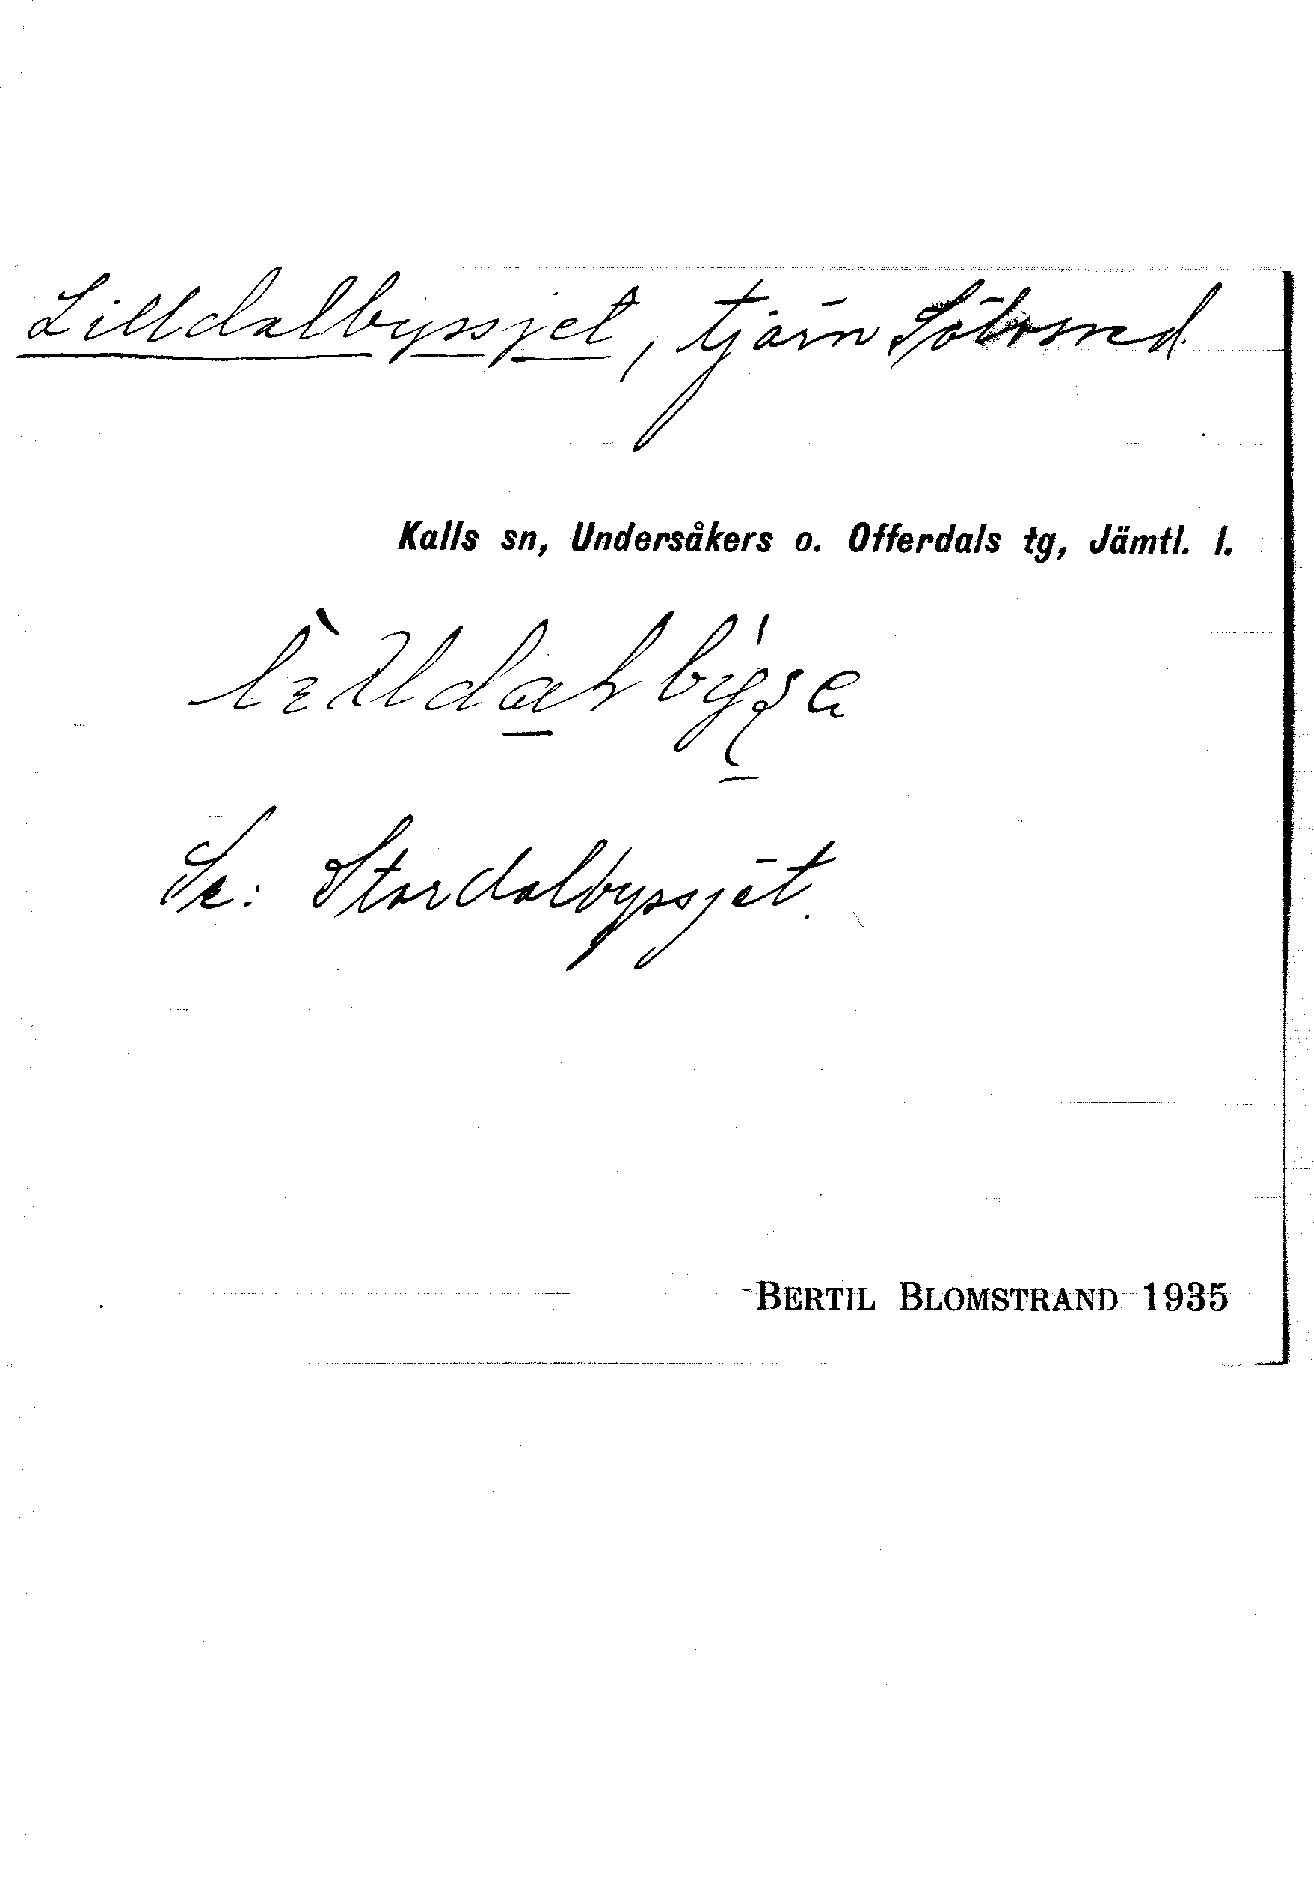 Lilldalbyssjet, tjärn Sölvsved
Kalls sn, Undersåkers o. Offerdals tg, Jämtl. l.
Se: Stordalbyssjet.
BERTIL BLOMSTRAND 1935